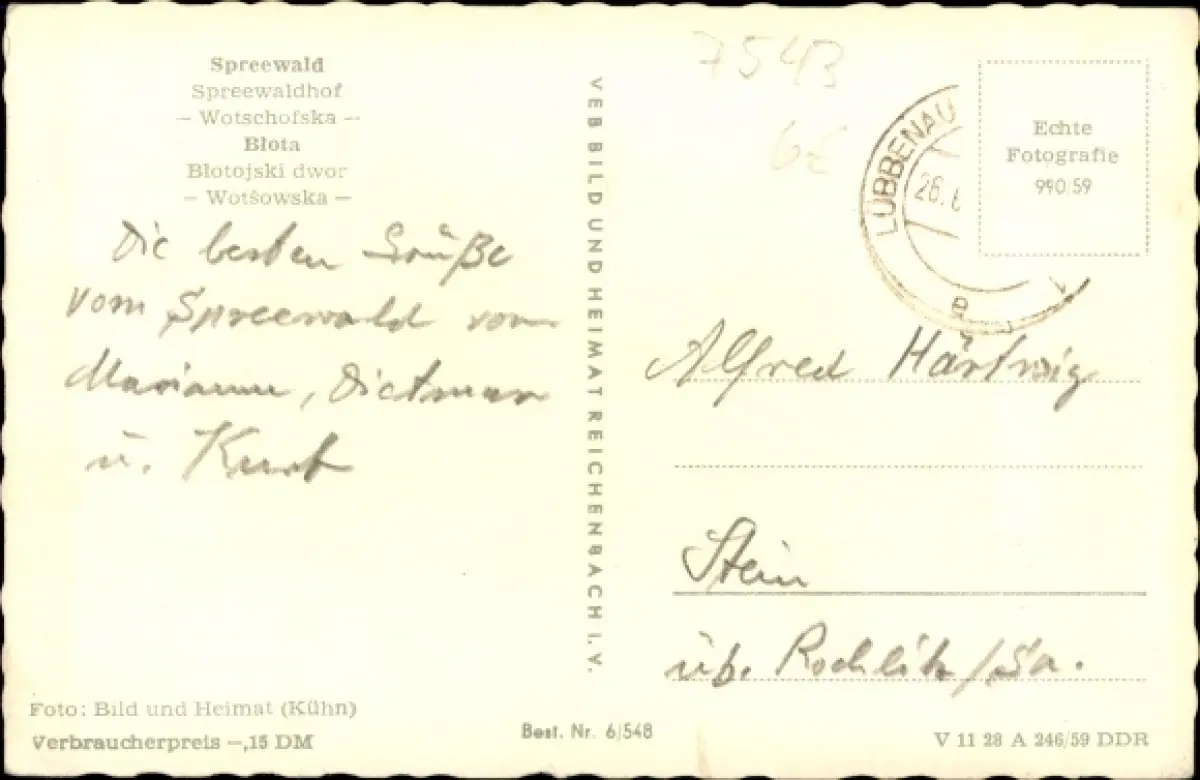 Spreewald
Spreewaldhof
— Wotschofska —
Błota
Błotojski dwor
— Wotšowska —
Die besten Grüße
vom Spreewald von
Marianne, Dietmar
u. Kurt
Foto: Bild und Heimat (Kühn)
Verbraucherpreis —,15 DM
VEB BILD UND HEIMAT REICHENBACH I. V.
Best. Nr. 6/548
7543
6€
LÜBBENAU
26.
e
Echte
Fotografie
990/59
Alfred Härtwig
Stein
üb. Rochlitz/Sa.
V 11 28 A 246/59 DDR